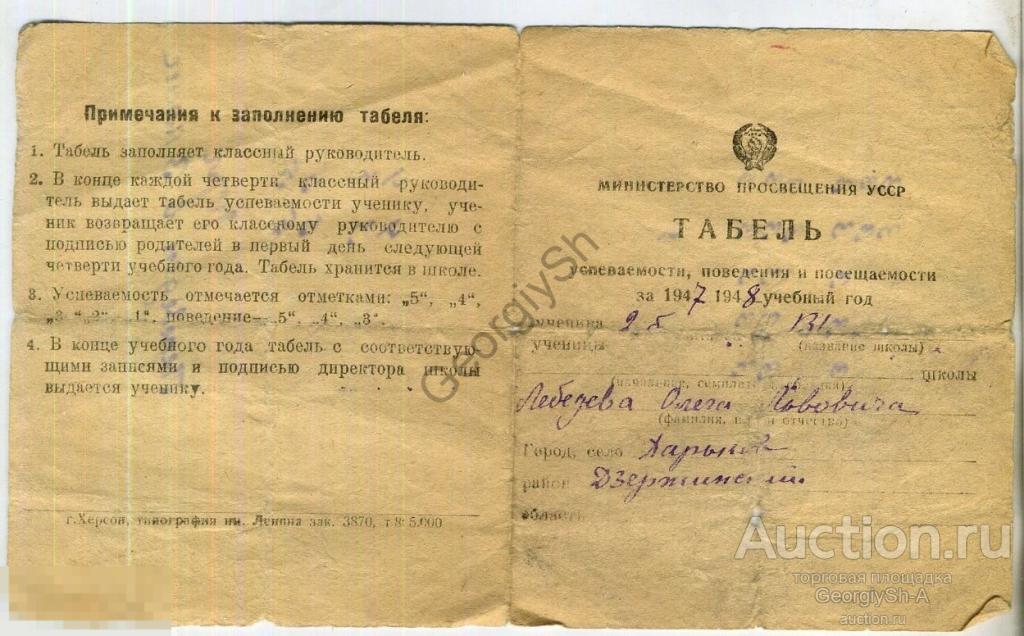 Примечания к заполнению табеля:
1. Табель заполняет классный руководитель.
2. В конце каждой четверти классный руководи-
тель выдает табель успеваемости ученику, уче-
ник возвращает его классному руководителю с
подписью родителей в первый день следующей
четверти учебного года. Табель хранится в школе.
3. Успеваемость отмечается отметками: „5“, „4“,
„3“ „2“, „1“. поведение—„5“, „4“, „3“.
4. В конце учебного года табель с соответствую-
щими записями и подписью директора школы
выдается ученику.
г.Херсон, типография им. Ленина зак. 3870, т 85.000
МИНИСТЕРСТВО ПРОСВЕЩЕНИЯ УССР
ТАБЕЛЬ
успеваемости, поведения и посещаемости
за 1947 1948 учебный год
ученика 2 б 131
ученицы (название школы)
школы
(начальная, семилетн
Лебедева Олега Львовича
(фамилия, отчество)
Город, село Харьков
район Дзержинский
область
GeorgiySh
Auction.ru
торговая площадка
GeorgiySh-A
auction.ru